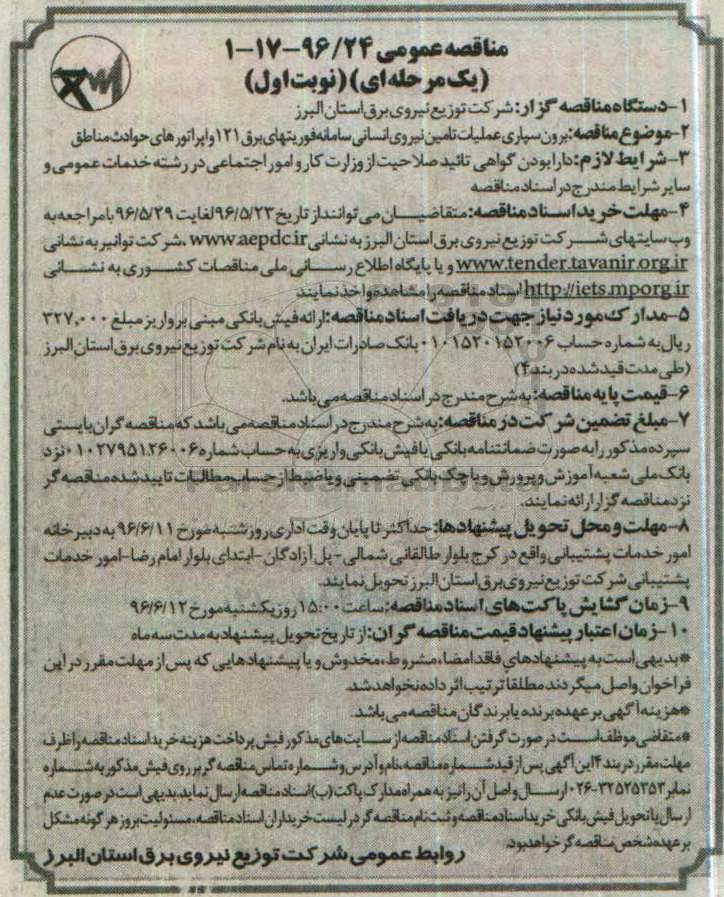 مناقصه عمومی ۹۶/۲۴-۱۷-۱
(یک مرحله ای) (نوبت اول)
۱-دستگاه مناقصه گزار: شرکت توزیع نیروی برق استان البرز
۲-موضوع مناقصه: برون سپاری عملیات تامین نیروی انسانی سامانه فوریتهای برق ۱۲۱ و اپراتورهای حوادث مناطق
۳-شرایط لازم: دارا بودن گواهی تائید صلاحیت از وزارت کار و امور اجتماعی در رشته خدمات عمومی و
سایر شرایط مندرج در اسناد مناقصه
۴-مهلت خرید اسناد مناقصه: متقاضیان می توانند از تاریخ ۹۶/۵/۲۳ لغایت ۹۶/۵/۲۹ با مراجعه به
وب سایتهای شرکت توزیع نیروی برق استان البرز به نشانی www.aepdc.ir ،شرکت توانیر به نشانی
www.tender.tavanir.org.ir و یا پایگاه اطلاع رسانی ملی مناقصات کشوری به نشانی
http://iets.mporg.ir اسناد مناقصه را مشاهده و اخذ نمایند
۵-مدارک مورد نیاز جهت دریافت اسناد مناقصه: ارائه فیش بانکی مبنی بر واریز مبلغ ۳۲۷,۰۰۰
ریال به شماره حساب ۰۱۰۱۵۲۰۱۵۲۰۰۶ بانک صادرات ایران به نام شرکت توزیع نیروی برق استان البرز
(طی مدت قید شده در بند ۴)
۶-قیمت پایه مناقصه: به شرح مندرج در اسناد مناقصه می باشد.
۷-مبلغ تضمین شرکت در مناقصه: به شرح مندرج در اسناد مناقصه می باشد که مناقصه گران بایستی
سپرده مذکور را به صورت ضمانتنامه بانکی یا فیش بانکی واریزی به حساب شماره ۰۱۰۲۷۹۵۱۲۶۰۰۶ نزد
بانک ملی شعبه آموزش و پرورش و یا چک بانکی تضمینی و یا ضبط از حساب مطالبات تایید شده مناقصه گر
نزد مناقصه گزار ارائه نمایند.
۸-مهلت و محل تحویل پیشنهادها: حداکثر تا پایان وقت اداری روز شنبه مورخ ۹۶/۶/۱۱ به دبیرخانه
امور خدمات پشتیبانی واقع در کرج بلوار طالقانی شمالی - پل آزادگان -ابتدای بلوار امام رضا-امور خدمات
پشتیبانی شرکت توزیع نیروی برق استان البرز تحویل نمایند.
۹-زمان گشایش پاکت های اسناد مناقصه: ساعت ۱۵:۰۰ روز یکشنبه مورخ ۹۶/۶/۱۲
۱۰-زمان اعتبار پیشنهاد قیمت مناقصه گران: از تاریخ تحویل پیشنهاد به مدت سه ماه
*بدیهی است به پیشنهادهای فاقد امضاء، مشروط، مخدوش و یا پیشنهادهایی که پس از مهلت مقرر در این
فراخوان واصل میگردند مطلقا ترتیب اثر داده نخواهد شد.
*هزینه آگهی بر عهده برنده یا برندگان مناقصه می باشد.
*متقاضی موظف است در صورت گرفتن اسناد مناقصه از سایت های مذکور فیش پرداخت هزینه خرید اسناد مناقصه را ظرف
مهلت مقرر در بند ۴ این آگهی پس از قید شماره مناقصه، نام و آدرس و شماره تماس مناقصه گر بر روی فیش مذکور به شماره
نمابر ۳۲۵۲۵۳۵۳-۰۲۶ ارسال و اصل آن را نیز به همراه مدارک پاکت (ب) اسناد مناقصه ارسال نماید. بدیهی است در صورت عدم
ارسال یا تحویل فیش بانکی خرید اسناد مناقصه و ثبت نام مناقصه گر در لیست خریداران اسناد مناقصه، مسئولیت بروز هرگونه مشکل
بر عهده شخص مناقصه گر خواهد بود.
روابط عمومی شرکت توزیع نیروی برق استان البرز